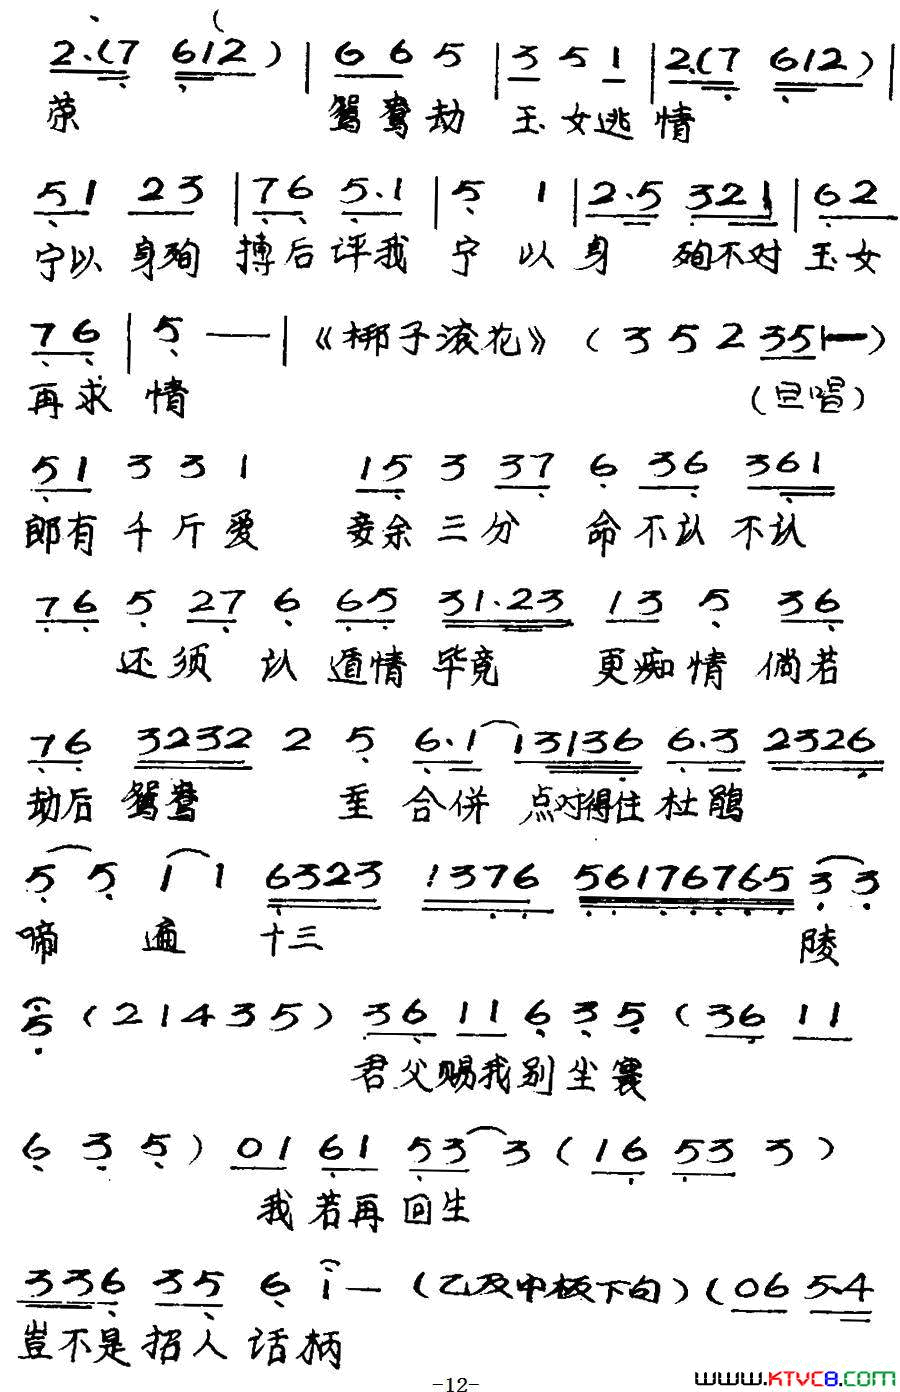 2·(7 612) | 6 6 5 | 3 5 1 | 2·(7 612) |
荣 鸳鸯劫 玉女逃情
51 23 | 76 5·1 | 5 1 | 2·5 321 | 62
宁以 身殉 搏后评我 宁以身 殉不对玉女
76 | 5 —— | 《梆子滚花》 ( 3 5 2 35 1— )
再求 情 (旦唱)
51 3 3 1 15 3 37 6 36 361
郎有千斤爱 妾余三分 命不认不认
76 5 27 6 65 31·23 13 5 36
还须认 遁情毕竟 更痴情倘若
76 3232 2 5 6·1 13136 6·3 2326
劫后鸳鸯 至合併 点对得住杜鹃
5 5 1 1 6323 1376 56176765 3 3
啼 遍 十三 陵
5 (21435) 36 11 6 3 5 (36 11
君父赐我别坐寰
6 3 5) 01 61 53 3 (16 53 3)
我若再回生
336 35 6 1— (乙反中板下句) (06 5·4
岂不是招人话柄
-12-
www.KTVC8.COM